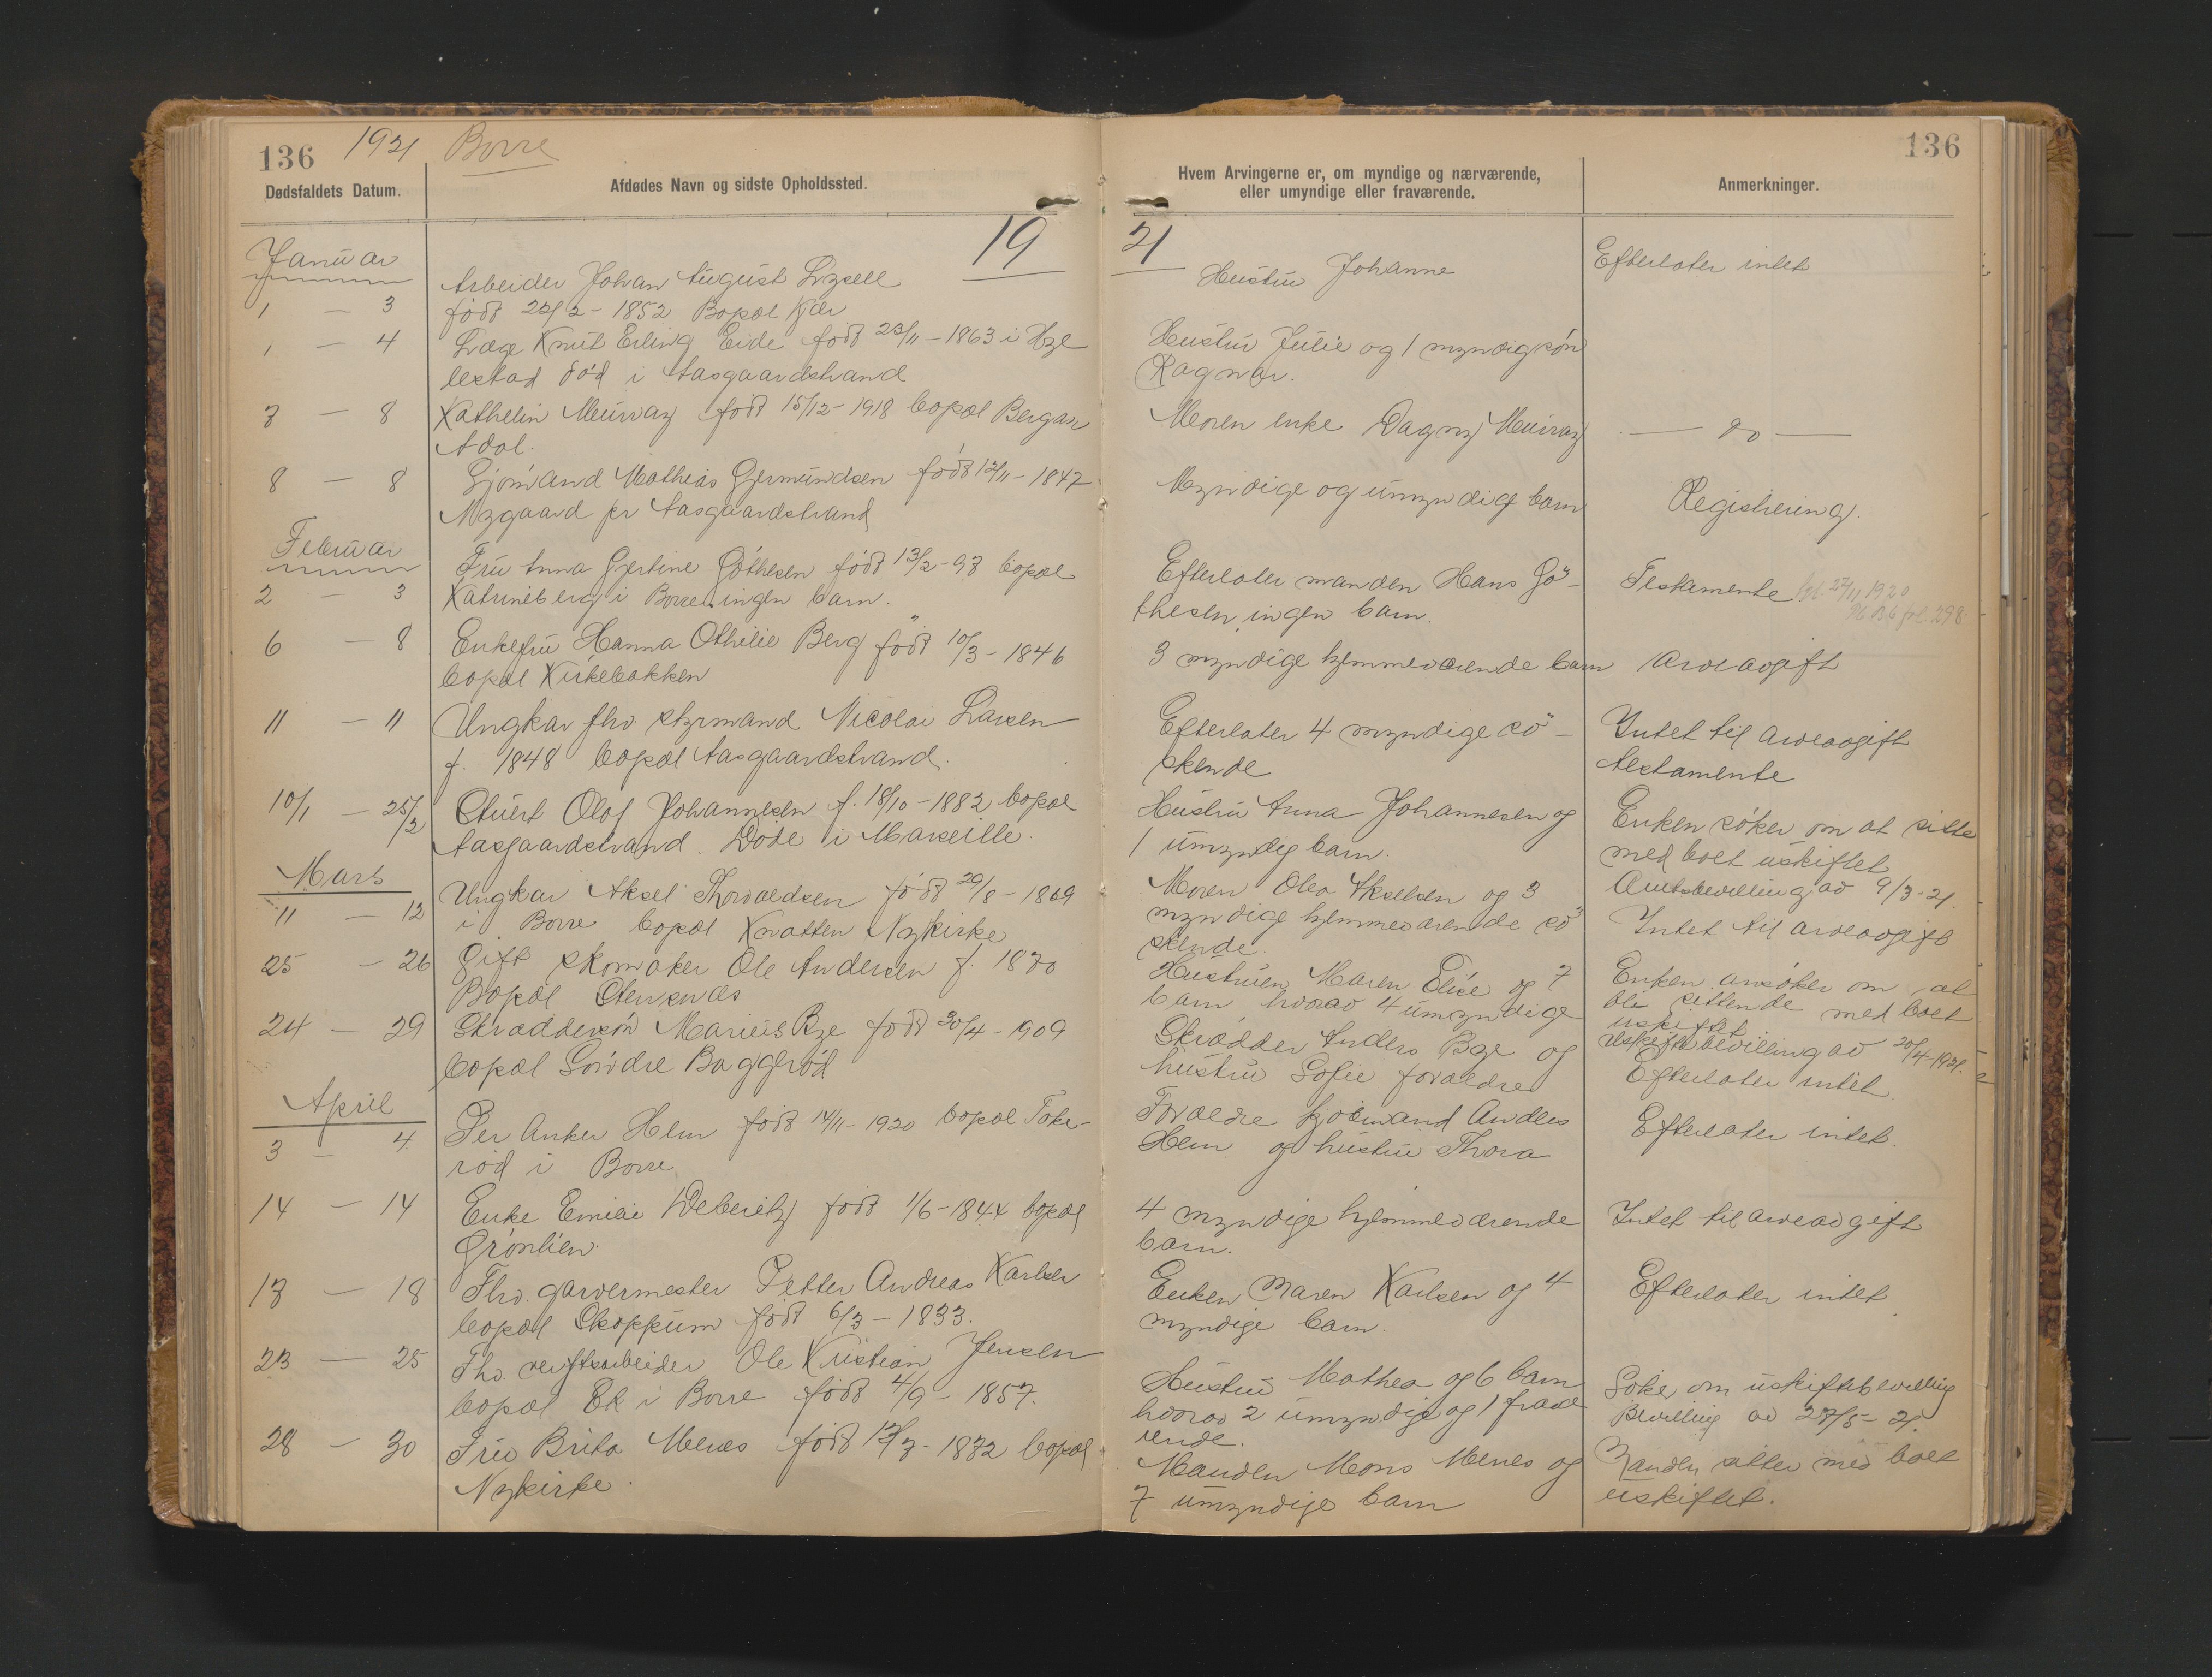 136 1921 Borre
Dødsfaldets Datum.
Afdødes Navn og sidste Opholdssted.
19
Januar
Arbeider Johan August
1 — 3
født 22/2 - 1852 Bopæl Kjær
1 — 4
Læge Knut Erling Eide født 23/11 - 1863 i
lestad död i Aasgaardstrand
7 — 8
Kathelin Murray født 15/12 - 1918 bopæl Bergan
Adal.
8 — 8
Sjømand Mathias Gjermundsen født 12/11 - 1847
Nygaard pr Aasgaardstrand
Februar
Fru Anna Gjertine Göthesen født 13/2 - 97 bopæl
2 — 3
Katrineberg i Borre. ingen barn.
6 — 8
Enkefru Hanna Othilie Berg født 10/3 - 1846
bopæl Kirkebakken
11 — 11
Ungkar fhv styrmand Nicolai Larsen
f. 1848 bopæl Aasgaardstrand.
10/1 — 25/2
Stuert Olof Johannesen f. 18/10 - 1882 bopæl
Aasgaardstrand. Döde i Marseille.
Mars
Ungkar Aksel Thorvaldsen født 29/8 - 1869
11 — 12
i Borre bopæl Knatten Nykirke
25 — 26
Gift skomaker Ole Andersen f. 1870
Bopæl Stensnæs
24 — 29
Skræddersön Marius Bye født 30/4 - 1909
bopæl Søndre Baggerød
April
Per Anker Hem født 14/11 - 1920 bopæl Toke-
3 — 4
rød i Borre
14 — 14
Enke Emilie Weberitz født 1/6 - 1844 bopæl
Grønlien.
13 — 18
Fhv. garvermester Petter Andreas Karlsen
bopæl Skoppum født 6/3 - 1833.
23 — 25
Fhv. verftsarbeider Ole Kristian Jensen
bopæl Ek i Borre født 4/9 - 1857.
28 — 30
Fru Brita Menes født 12/7 - 1872 bopæl
Nykirke.
136
Hvem Arvingerne er, om myndige og nærværende,
eller umyndige eller fraværende.
Anmerkninger.
21
Hustru Johanne
Efterlater intet
Hustru Julie og 1 myndig søn
Ragnar.
Moren enke Dagny Murray
— do —
Myndige og umyndige barn
Registrering.
Efterlater manden Hans Gö-
thesen, ingen barn.
Testamente 27/11 1920
298
3 myndige hjemmeværende barn
Arveavgift
Efterlater 4 myndige sö-
skende
Intet til arveavgift
testamente
Hustru Anna Johannesen og
1 umyndig barn.
Enken søker om at sitte
med boet uskiftet
Amtsbevilling av 9/3 - 21.
Moren Olea Akselsen og 3
myndige hjemmeværende sö
skende.
Intet til arveavgift
Hustruen Maren Elise og 7
barn hvorav 4 umyndige
Enken ansøker om at
bli sittende med boet
uskiftet
Uskiftebevilling av 20/4 - 1921.
Skrædder Anders Bye og
hustru Sofie forældre
Efterlater intet.
Forældre sjømand Anders
Hem og hustru Thora
Efterlater intet.
4 myndige hjemmeværende
barn.
Intet til arveavgift
Enken Maren Karlsen og 4
myndige barn.
Efterlater intet
Hustru Mathea og 6 barn
hvorav 2 umyndige og 1 fravæ
rende.
Søker om uskiftebevilling
Bevilling av 27/5 - 21.
Manden Mons Menes og
7 umyndige barn
Manden sitter med boet
uskiftet.